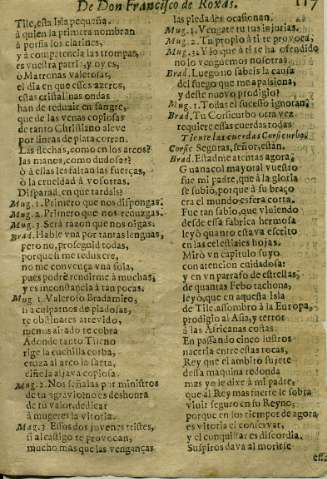 De Don Francisco de Roxas. 117
Tile, esta Isla pequeña,
à quien la primera nombran
à porfia los clarines,
y à competencia las trompas,
es vuestra patri , y oy es,
o Matronas valerosas,
el dia en que essos azeros,
estas cristalinas ondas
han de reducir en sangre,
que de las venas copiosas
de tanto Christiano aleve
por lineas de plata corran.
Las flechas, como en los arcos?
las manos, como dudosas?
ò à ellas les faltan las fuerças,
ò la crueldad à vosotras.
Disparad, en que tardais?
Mug. 1. Primero que nos dispongas.
Mug. 2. Primero que nos reduzgas.
Mug. 3. Será razon que nos oygas.
Brad. Hable vna por tantas lenguas,
pero no, proseguid todas,
porque si me reduxere,
no me convença vna sola,
pues podrè rendirme à muchas,
y es inconstancia à tan pocas.
Mug. 1. Valeroso Bradamiro,
si a culparnos de piadosas,
te obstinares atrevido,
menos airado te cobra
Adonde tanto Tileno
rige la cuchilla corba,
cruza al arco la saeta,
ciñe la aljava copiosa.
Mug. 2. Nos señalas por ministros
de tu agravio no es deshonra
de tu valor, dedicar
à mugeres la vitoria.
Mug. 3 Essos dos jovenes tristes,
si al castigo te provocan,
mucho mas que las venganças
las piedades ocasionan.
Mug. 1. Vengate tu tus injurias.
Mug. 2. Tu proprio à ti te provoca,
Mug. 3. Y lo que à ti se ha ofendido
no lo venguemos nosotras.
Brad. Luego no sabeis la causa
del fuego que me apassiona,
y deste nuevo prodigio?
Mug. 1. Todas el sucesso ignoran.
Brad. Tu Corsicurbo otra vez
requiere essas cuerdas todas
Tiente las cuerdas Corsicurbo.
Corsic Seguras, señor, están.
Brad. Estadme atentas agora,
Guanacol mayoral vuestro
fue mi padre, que à la gloria
se subio, porque à su braço
era el mundo esfera corta.
Fue tan sabio, que viviendo
desde essa fabrica hermosa
leyò quanto estava escrito
en las celestiales hojas.
Mirò vn capitulo suyo
con atencion cuidadosa
y en vn parrafo de estrellas,
de quantas Febo tachona,
leyò, que en aquesta Isla
de Tile, assombro à la Europa,
prodigio al Asia, y terror
à las Africanas costas.
En passando cinco lustros
naceria entre estas rocas,
Rey que el ambito sujete
dessa maquina redonda
mas yo le dixe à mi padre,
que al Rey mas fuerte le sobra
vivir seguro en su Reyno,
porque en los tiempos de agora,
es vitoria el conservar,
y el conquistar es discordia.
Suspiros dava al morirse